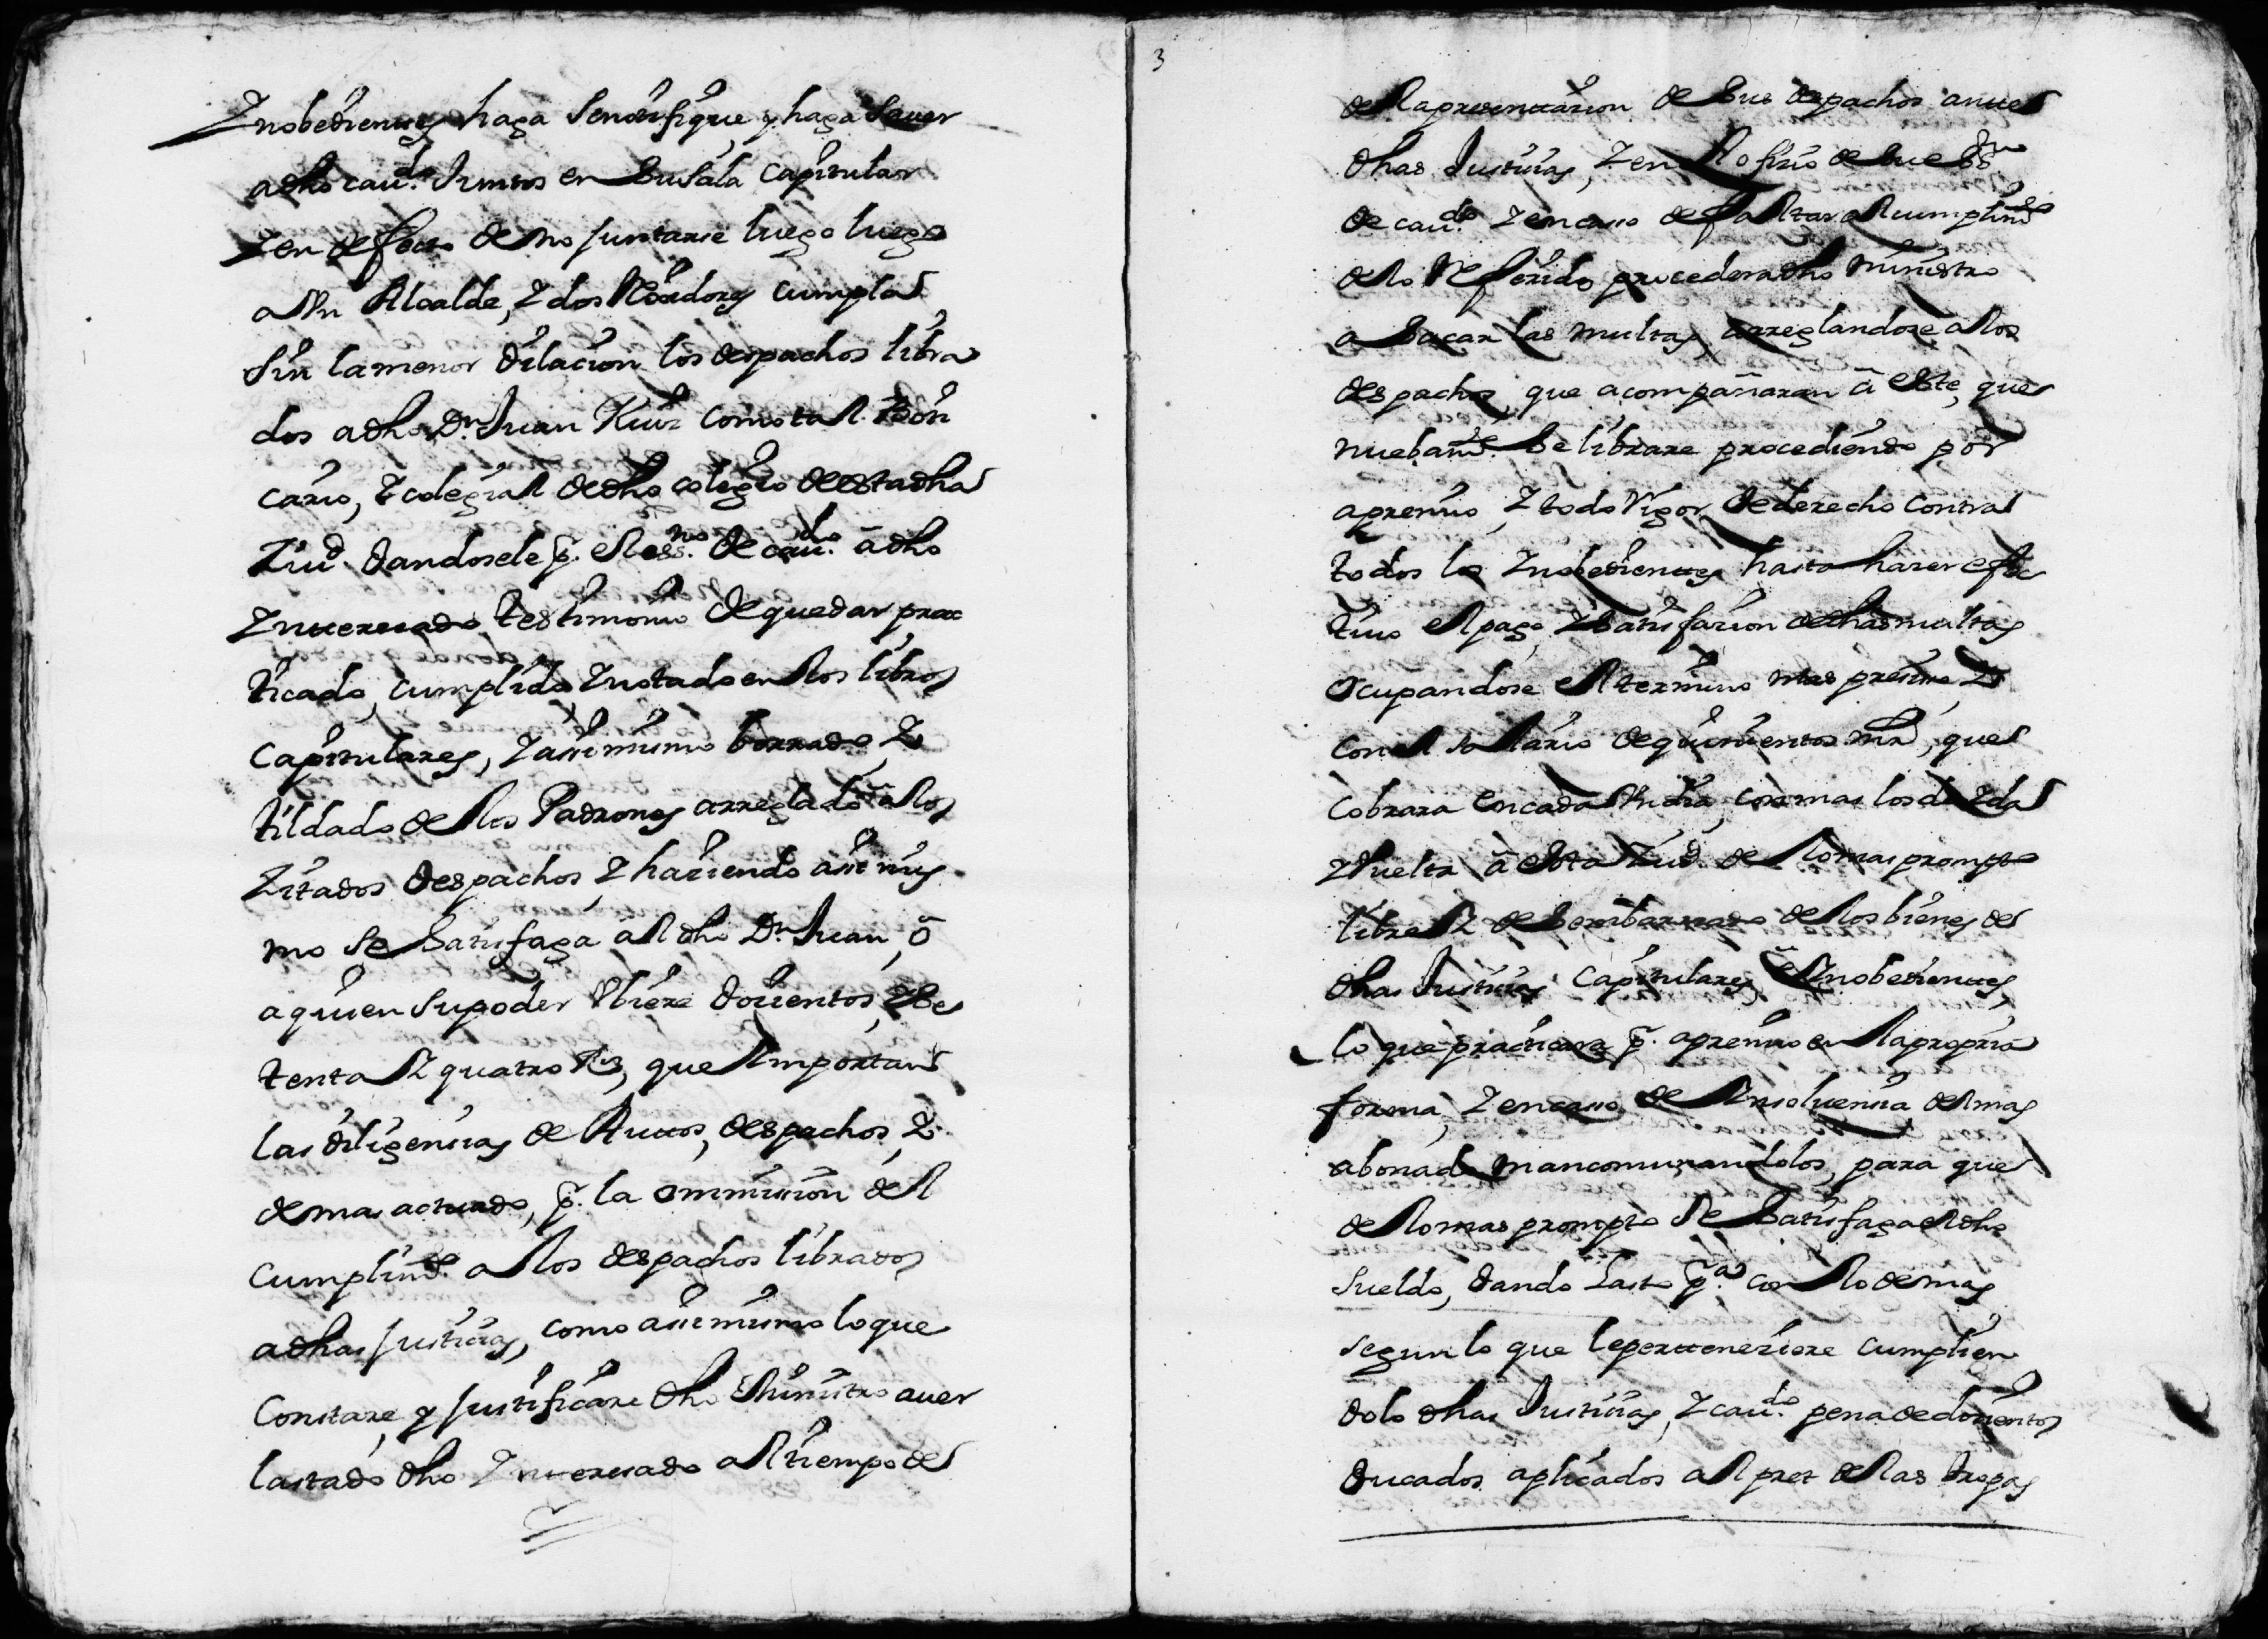 Ynobedientes haga Senotifique, y haga Saver
adho cau.do Juntos en Su Sala Capitular
Y en defecto de no Juntarse luego luego
a Un Alcalde, Y dos Rexidores cumpla
Sin la menor dilacion los despachos libra
dos a dho Dn. Juan Ruiz Como tal Boti
cario, Y colegial de dho colegio de esta dha
Ziud. dandosele p. el ess.no de cau.do a dho
Ynteresado testimonio de quedar prac
ticado, cumplido Y notado en los libros
Capitulares, Y assimismo borrado, Y
tildado de los Padrones arreglado a los
Zitados despachos, Y haziendo assimis
mo Se Satisfaga al dho Dn. Juan, ô
a quien Supoder Ubiere dozientos, Y Se
tenta Y quatro Rs, que Ymportan
las diligencias de Auttos, despachos, Y
demas actuado, p. la ommission del
Cumplim.to a los despachos librados
a dhas Justicias, como assimismo lo que
Constare, y Justificare dho Ministro aver
lastado dho Ynteresado al tiempo de
3
de la presentazion de Sus despachos antte
dhas Justicias, Y en el ofizio de Su ess.no
de cau.do Y en caso de faltar al cumplim.to
de lo Referido procedera dho Ministro
a Sacar las multas, arreglandose a los
despachos, que acompañaran â este, que
nuebam.te Se librare procediendo por
apremio, Y todo Rigor de derecho Contra
todos los Ynobedienttes hasta hazer efec
tivo el pago, Y Satisfazion de dhas multas
Ocupandose el termino mas presiso, Y
Con el Salario de quinientos mrs, que
Cobrara en cada Un dia, con mas los de Yda
Y Vuelta â esta Ziud. de lo mas prompto
libre Y desembarazado de los bienes de
dhas Justicias Capitulares, e Ynobedienttes,
lo que practicara p. apremio en la propria
forma, Y en caso de Ynsolvencia del mas
abonado mancomunandolos, para que
de lo mas prompto Se Satisfaga el dho
Sueldo, dando lasto p.a con lo demas
Segun lo que le pertteneziere Cumplien
dolo dhas Justicias, Y cau.do pena de dozientos
Ducados aplicados al pret de las tropas